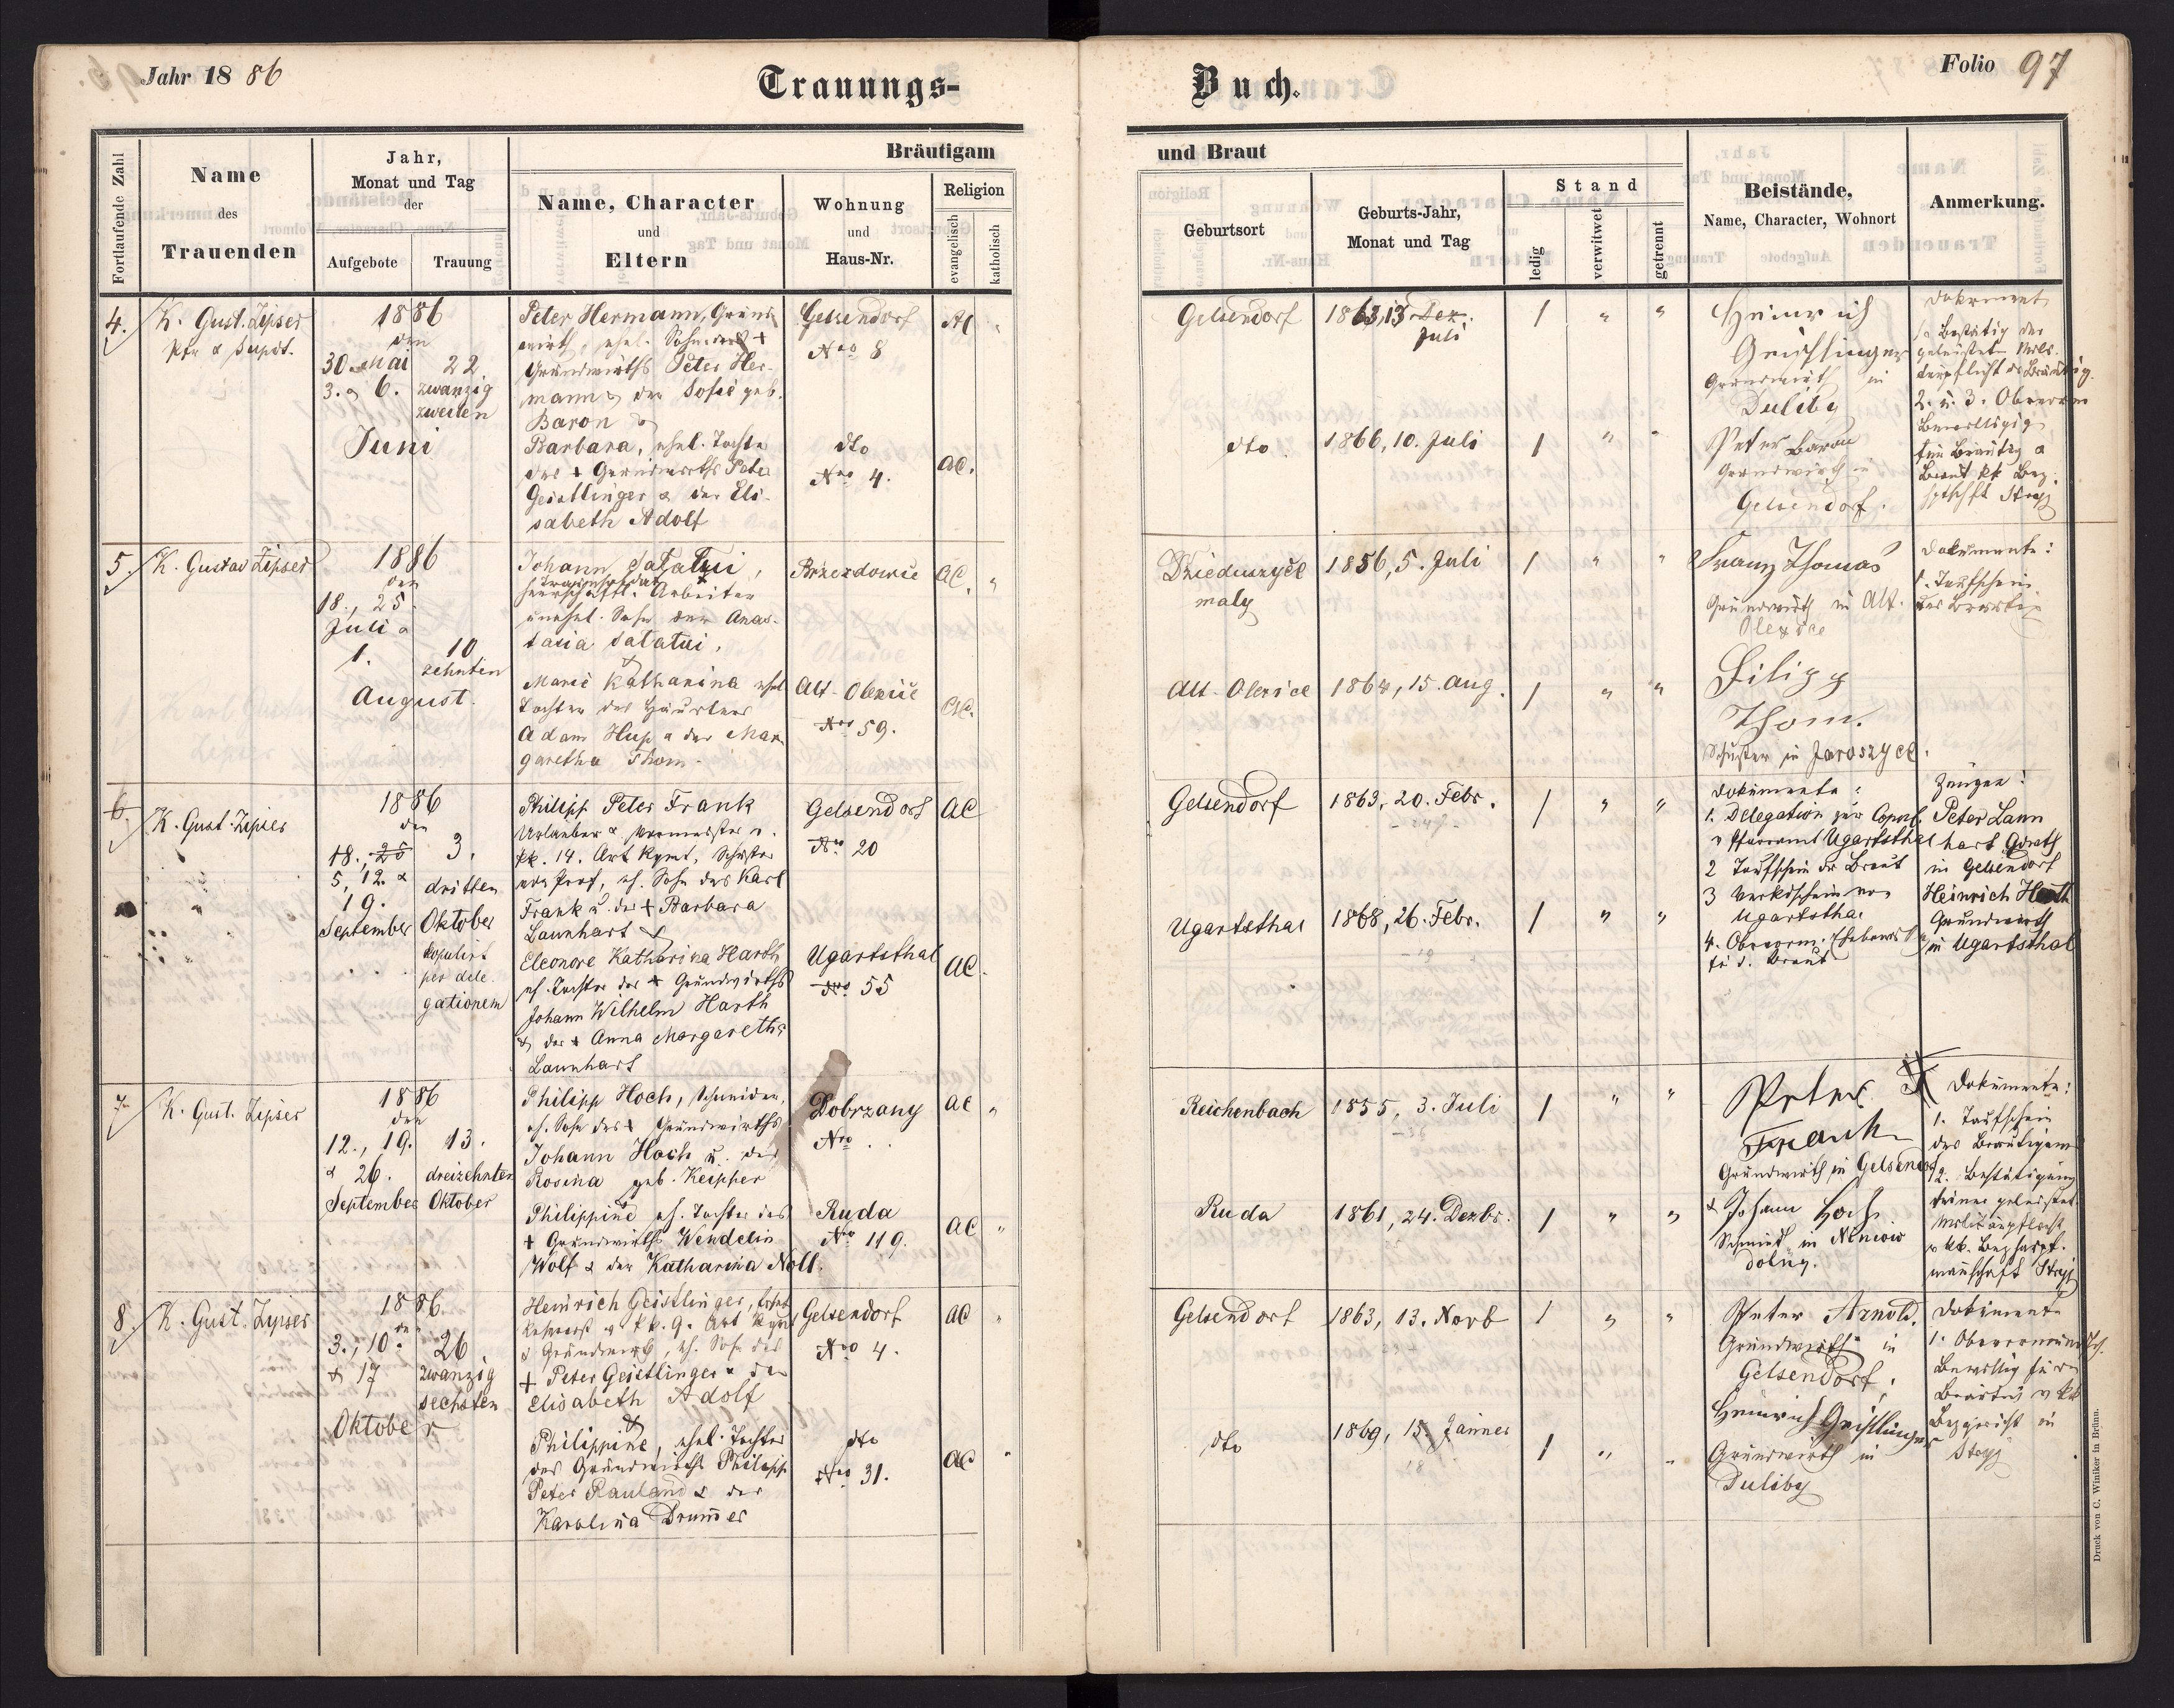 Jahr 18 86
Trauungs-
Buch.
Folio 97
Fortlaufende Zahl
Name
des
Trauenden
Jahr,
Monat und Tag
der
Aufgebote
Trauung
Bräutigam
und Braut
Name, Character
und
Eltern
Wohnung
und
Haus-Nr.
Religion
evangelisch
katholisch
Geburtsort
Geburts-Jahr,
Monat und Tag
Stand
ledig
verwitwet
getrennt
Beistände,
Name, Character, Wohnort
Anmerkung.
4.
K. Gust. Zipser
Pfr &
1886
den
30. Mai
3. & 6.
Juni
22
zwanzig
zweiten
Peter Hermann, Grund
wirth, ehel. Sohn des +
Grundwirths Peter Her-
mann & der Sofie geb.
Baron &
Barbara, ehel. Tochter
des + Grundwirths Peter
Geistlinger & der Eli-
sabeth Adolf
Gelsendorf
Nro 8
dto
Nro 4.
AC
AC.
Gelsendorf
1863, 13 Dez.
Juli
dto
1866, 10. Juli
Heinrich
Geistlinger
Grundwirth in
Duliby
Peter Baron
Grundwirth in
Gelsendorf.
Dokument
2. u. 3. Obervorm
Bewilligig
für Bräutig &
Braut kk Bez.
Stryj
5.
K. Gustav Zipser
1886
den
18., 25.
Juli &
1.
August.
10
zehnten
Johann Salatui,
herrschaftl. Arbeiter
unehel. Sohn der Anas-
tasia Salatui,
&
Marie Katharina ehel
Tochter des Häuslers
Adam Hup & der Mar-
garetha Thom.
Brzezdowie
Alt-Olexice
Nro 59.
AC.
AC.
Dzieduszyce
maly
1856, 5. Juli
Alt-Olexice
1864, 15. Aug.
Franz Thomas
Grundwirth in Alt-
Olexice
Filipp
Thom.
Schuster in Jaroszyce.
Dokumente:
1. Taufschein
des Bräutig
6.
K. Gust. Zipser
1886
den
18., 25
5, 12. &
19.
September
3.
dritten
Oktober
kopulirt
per dele
gationem
Philipp Peter Frank
Urlauber & Vormeister v.
kk. 14. Art Rgmt, Schuster
von Prof, eh. Sohn des Karl
Frank u. der + Barbara
Launhart &
Eleonore Katharina Harth
eh. Tochter des + Grundwirths
Johann Wilhelm Harth
& der + Anna Margaretha
Launhart
Gelsendorf
Nro 20
Ugartsthal
Nro 55
AC
AC.
Gelsendorf
1863, 20. Febr.
Ugartsthal
1868, 26. Febr.
Dokumente:
1. Delegation zur Copul.
v Pfarramt Ugartsthal
2 Taufschein der Braut
3 Verkdschein von
Ugartsthal
4. Obervorm.
für d. Braut
Zeugen:
Peter Laun
hart Gdwrth
in Gelsendorf
Heinrich Harth
Grundwirth
in Ugartsthal
7.
K. Gust. Zipser
1886
den
12., 19.
& 26.
September
13.
dreizehnten
Oktober
Philipp Hoch, Schneider,
eh. Sohn des + Grundwirths
Johann Hoch u. der
Rosina geb. Keipper
&
Philippine eh. Tochter des
+ Grundwirths Wendelin
Wolf & der Katharina Noll.
Dobrzany
Nro .
Ruda
Nro 119.
AC
AC
Reichenbach
1855, 3. Juli
Ruda
1861, 24. Dezbr.
Peter
Frank
Grundwirth in Gelsendorf
& Johann Hoch
Schmied in Nieniow
dolny.
Dokumente:
1. Taufschein
des Bräutigams
2. Bestätigung
seiner geleistet.
Militärpflicht
v kk. Bezhaupt-
mannschaft Stryj
8.
K. Gust. Zipser
1886.
den
3., 10.
& 17
Oktober
26
zwanzig
sechsten
Heinrich Geistlinger, Ersatz
Reservist v kk. 9. Art Rgmt
& Grundwirth, eh. Sohn des
+ Peter Geistlinger & der
Elisabeth Adolf
&
Philippine, ehel. Tochter
des Grundwirths Philipp
Peter Rauland & der
Karolina Drummer
Gelsendorf
Nro 4.
dto
Nro 31.
AC
AC
Gelsendorf
1863, 13. Novb
dto
1869, 15. Jänner
Peter Arnold,
Grundwirth in
Gelsendorf;
Heinrich Geistlinger
Grundwirth in
Duliby
Dokumente
1. Obervormundsch.
Bewillig für den
Bräutig v kk
Bezgericht in
Stryj
Druck von C. Winiker in Brünn.